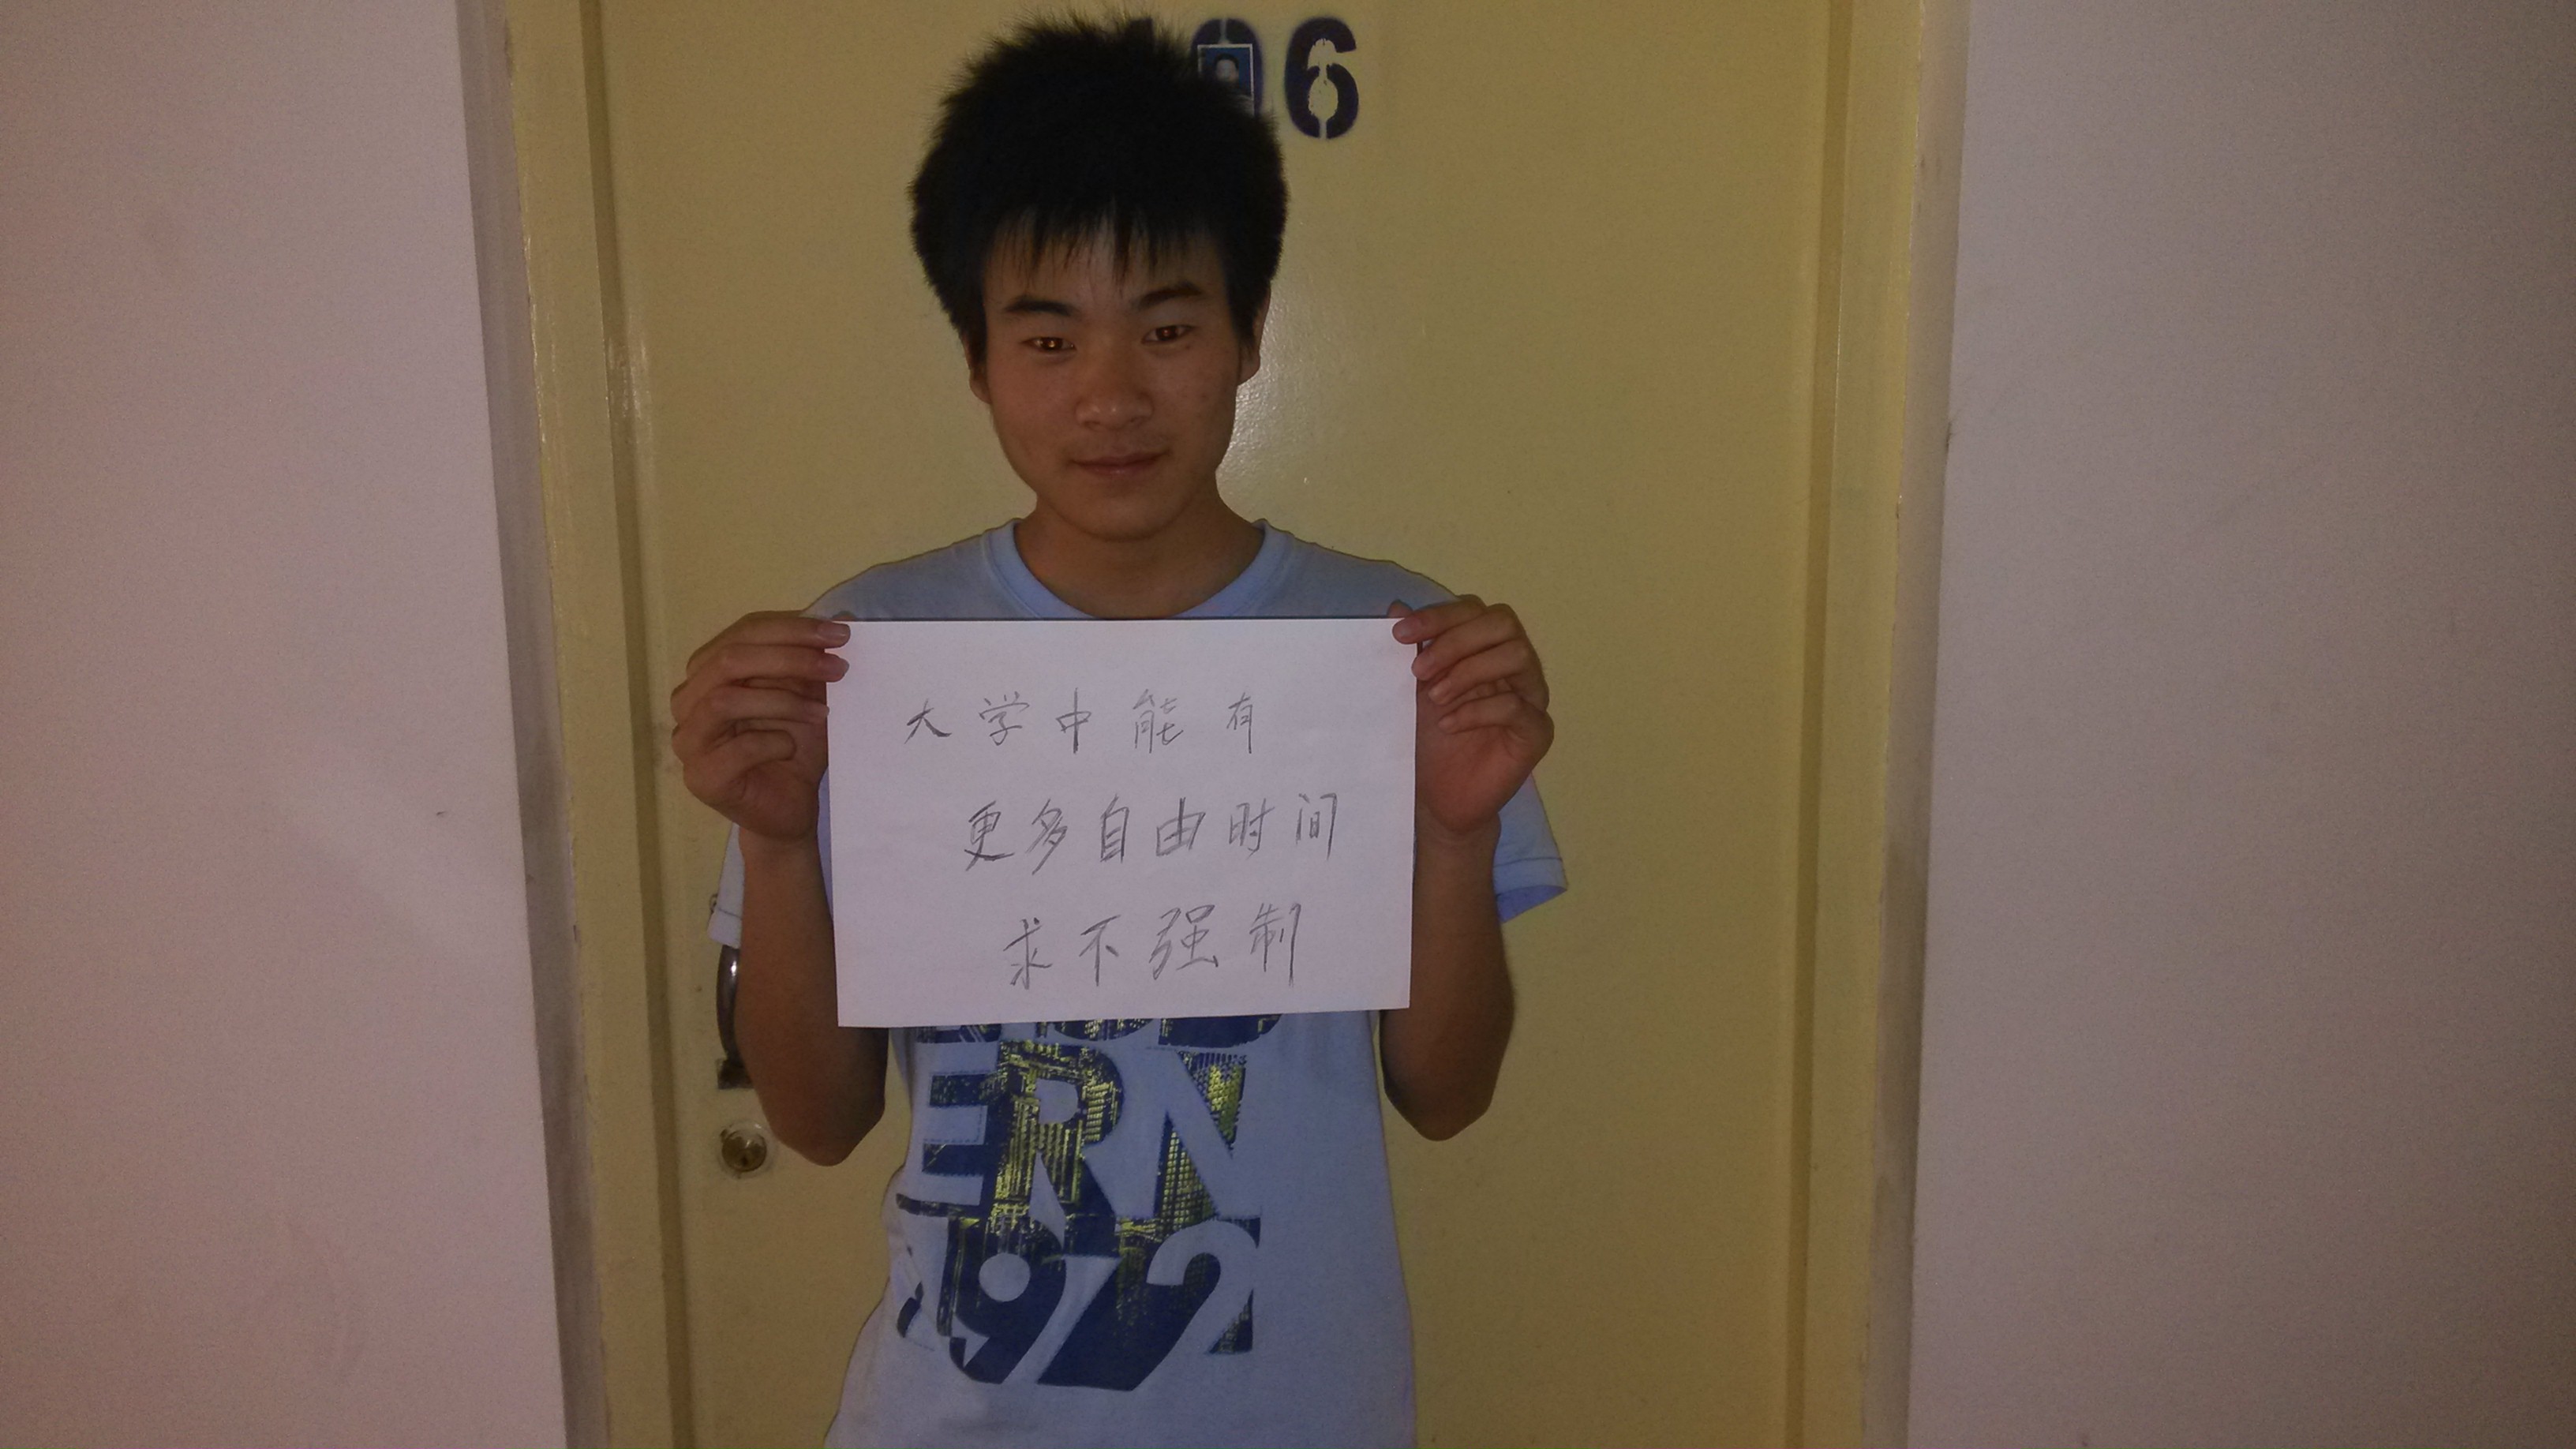 06
大学中能有
更多自由时间
求不强制
ERN
1972